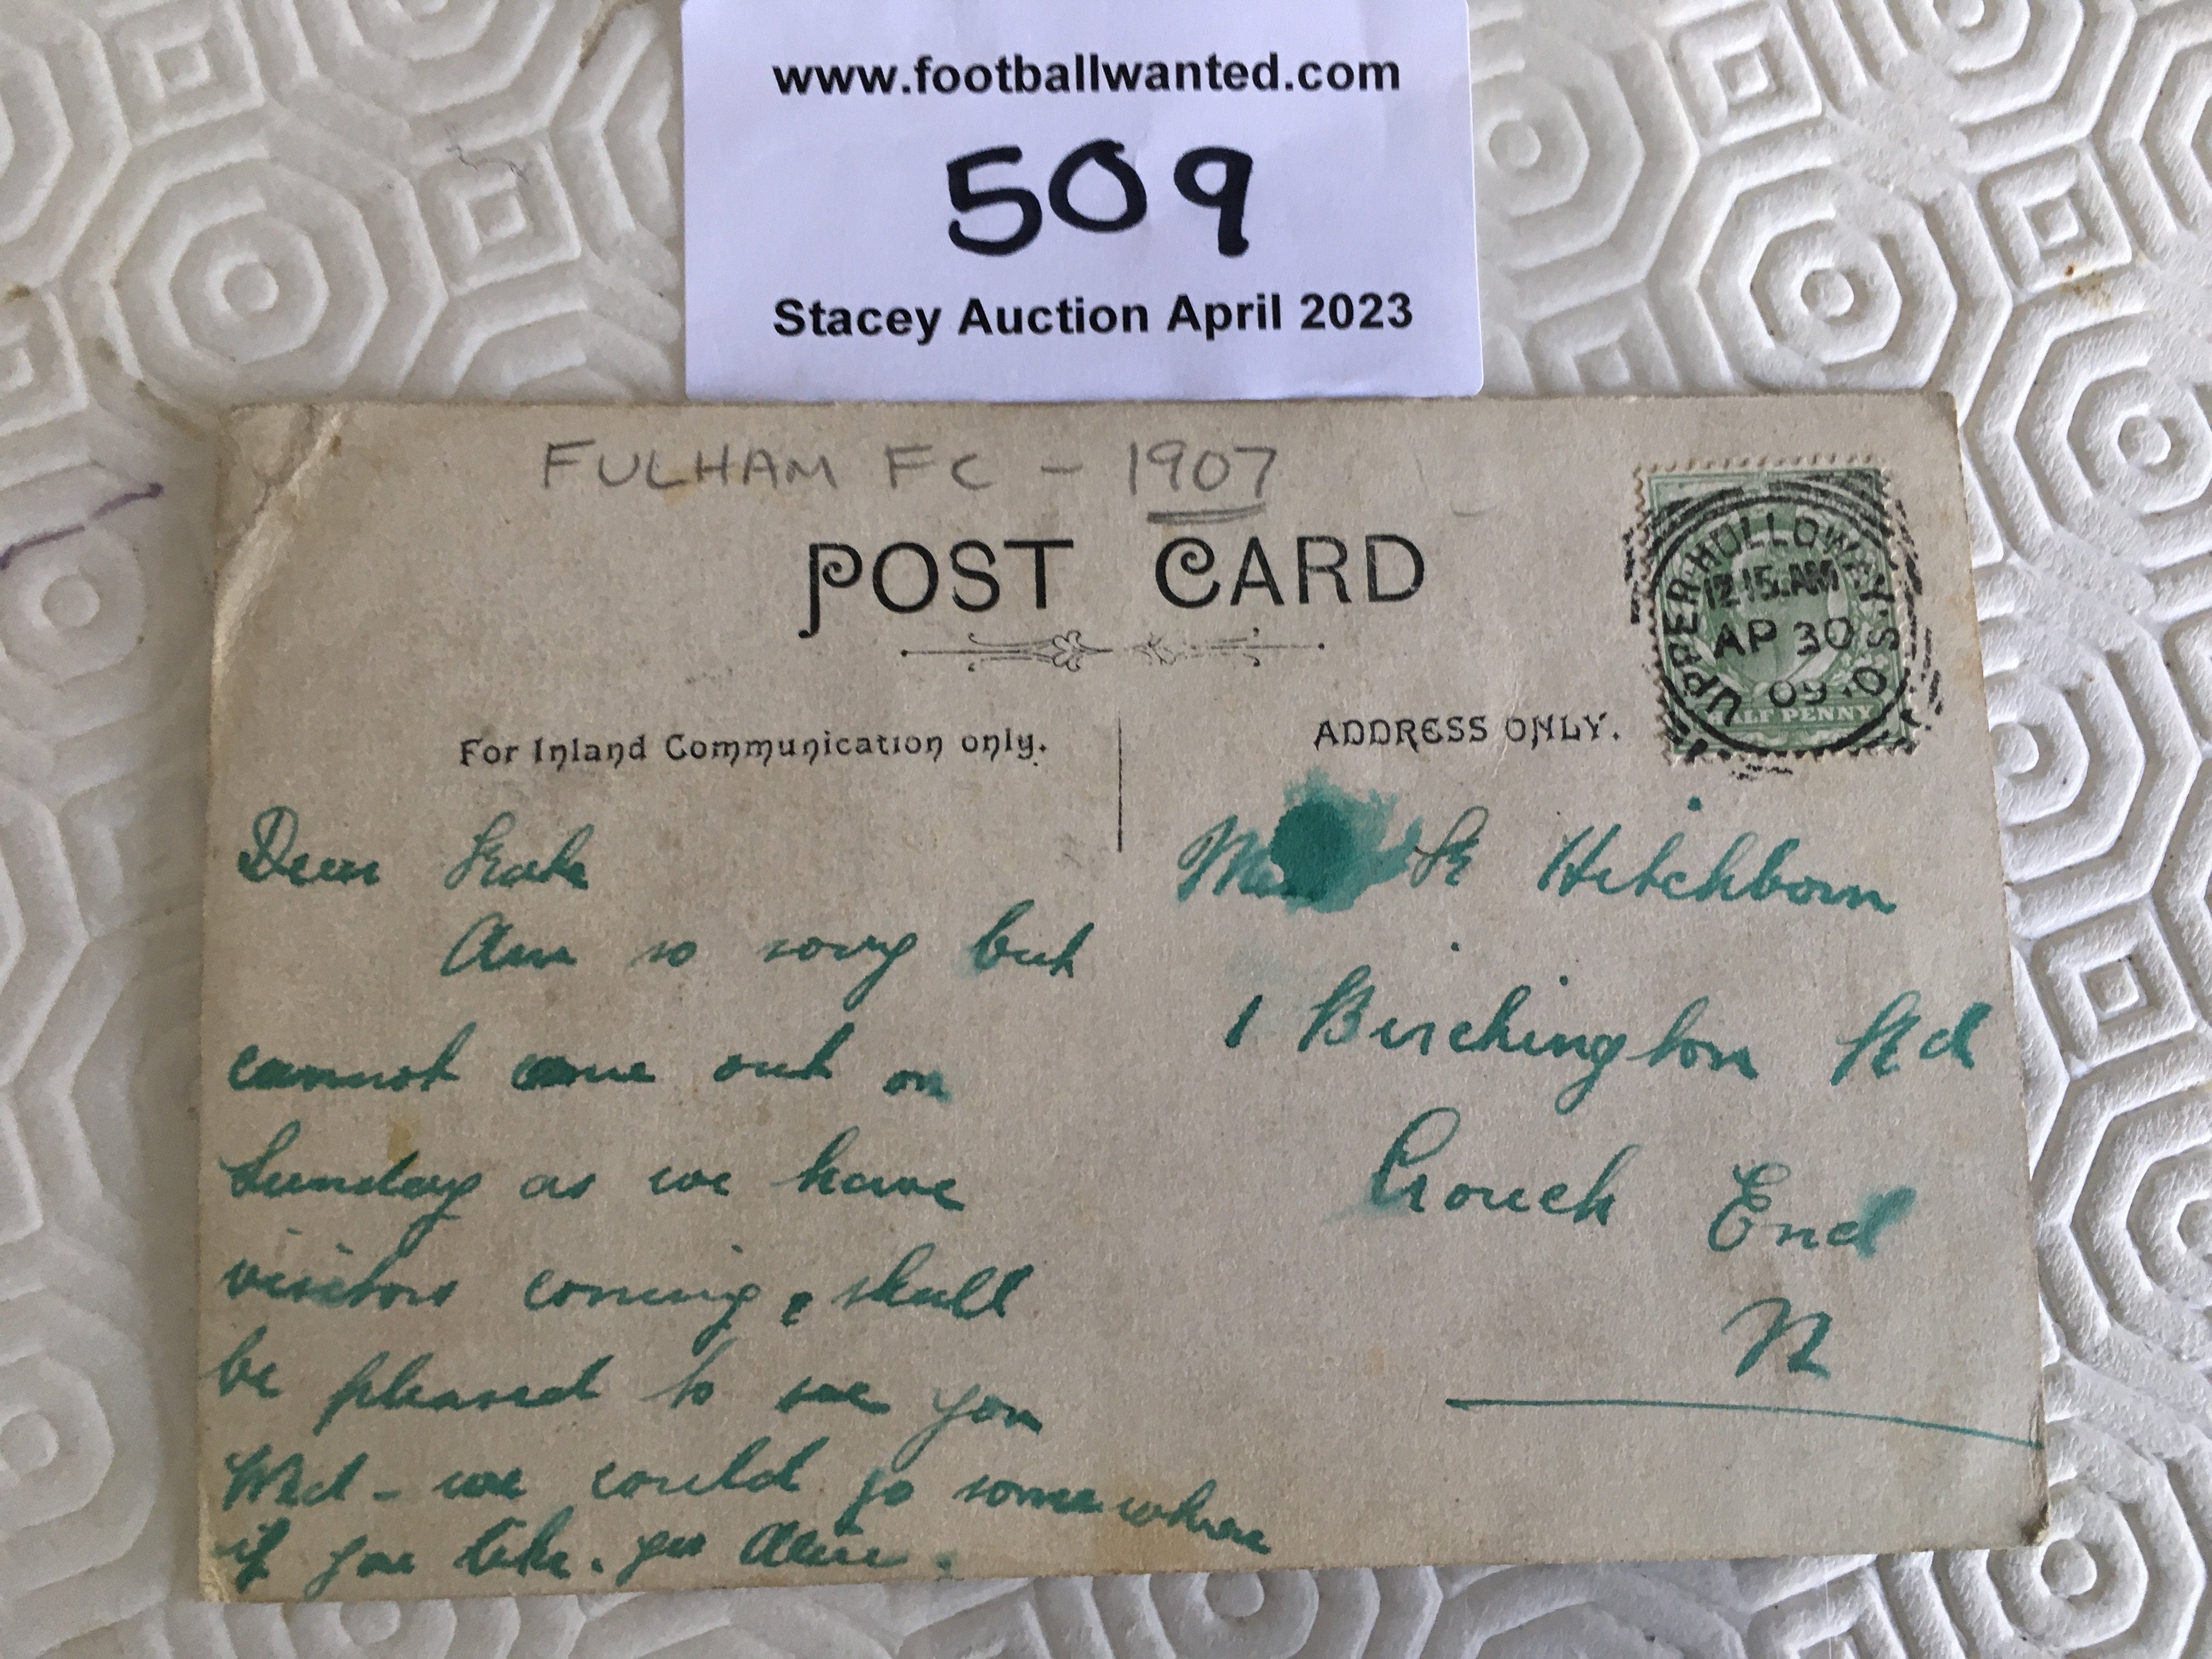 www.footballwanted.com
509
Stacey Auction April 2023
FULHAM FC - 1907
POST CARD
UPPER HOLLOWAY. S.O.
12.15. AM
AP 30
09
HALF PENNY
For Inland Communication only.
ADDRESS ONLY.
Dear Kate
Am so sorry but
cannot come out on
Sunday as we have
visitors coming, shall
be pleased to see you
Wed - we could go somewhere
if you like. yrs
K Hitchborn
1 Birchington Rd
Crouch End
N